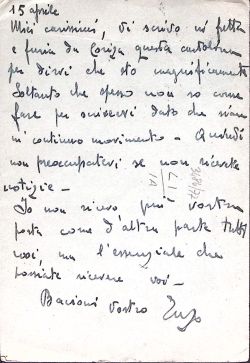 15 aprile
Miei carissimi, vi scrivo in fretta
e furia da Gorizia questa cartolina
per dirvi che sto magnificamente
Soltanto che spesso non so come
fare per scrivervi dato che siamo
in continuo movimento - Quindi
non preoccupatevi se non ricevete
notizie -
Io non ricevo più vostra
posta come d'altra parte tutti
così, ma l'essenziale che
possiate ricevere voi -
Bacioni vostro